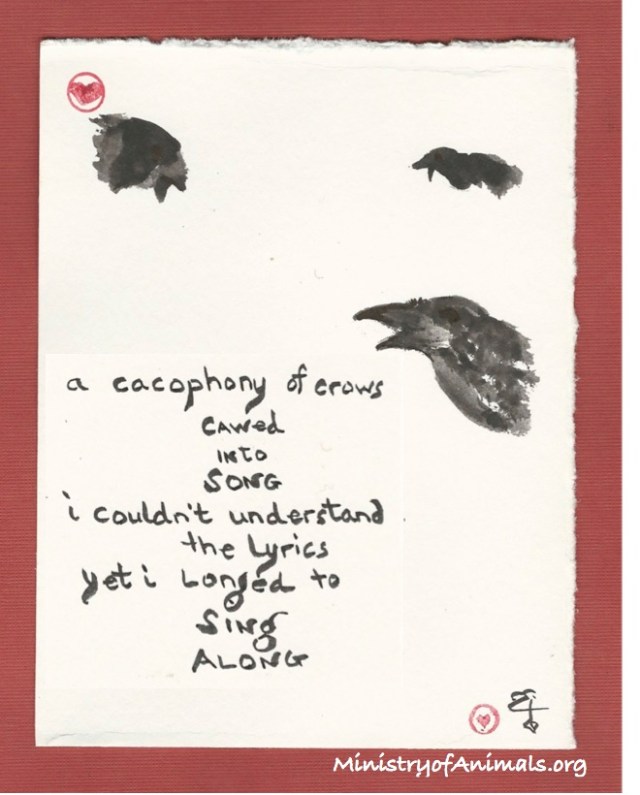 a cacophony of crows
cawed
into
SONG
i couldn't understand
the Lyrics
yet i Longed to
SiNg
ALONG
MinistryofAnimals.org